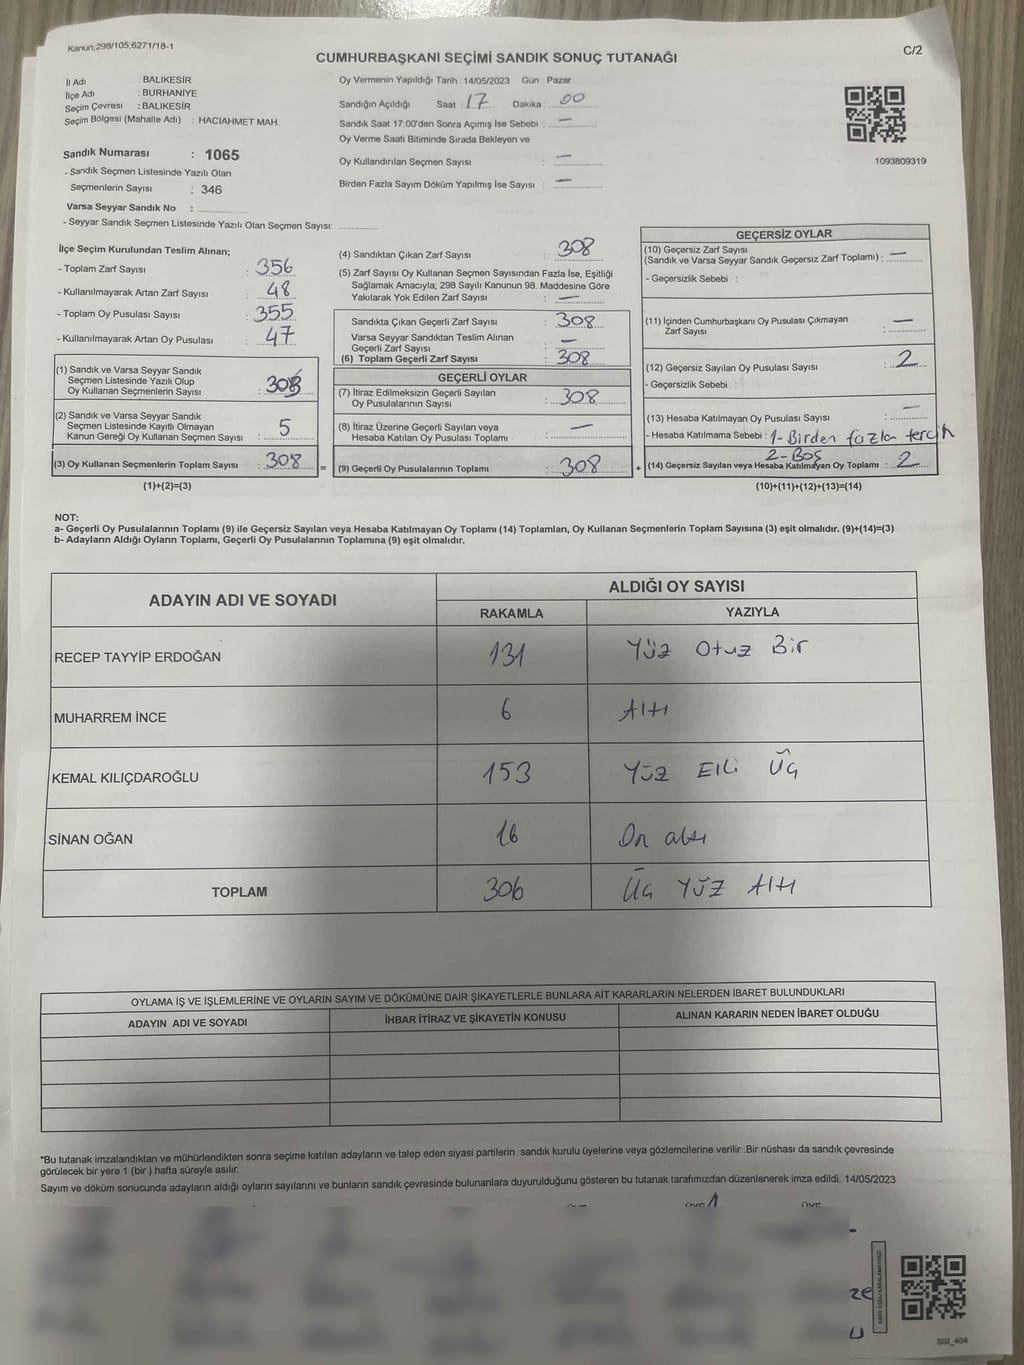 Kanun;298/105,6271/18-1
C/2
CUMHURBAŞKANI SEÇİMİ SANDIK SONUÇ TUTANAĞI
İl Adı : BALIKESİR
İlçe Adı : BURHANİYE
Seçim Çevresi : BALIKESİR
Seçim Bölgesi (Mahalle Adı) : HACIAHMET MAH.
Oy Vermenin Yapıldığı Tarih : 14/05/2023 Gün : Pazar
Sandığın Açıldığı Saat : 17 Dakika : 00
Sandık Saat 17:00'den Sonra Açımış İse Sebebi : —
Oy Verme Saati Bitiminde Sırada Bekleyen ve
Oy Kullandırılan Seçmen Sayısı : —
Birden Fazla Sayım Döküm Yapılmış İse Sayısı : —
1093809319
Sandık Numarası : 1065
- Sandık Seçmen Listesinde Yazılı Olan
Seçmenlerin Sayısı : 346
Varsa Seyyar Sandık No :
- Seyyar Sandık Seçmen Listesinde Yazılı Olan Seçmen Sayısı:
İlçe Seçim Kurulundan Teslim Alınan;
- Toplam Zarf Sayısı : 356
- Kullanılmayarak Artan Zarf Sayısı : 48
- Toplam Oy Pusulası Sayısı : 355
- Kullanılmayarak Artan Oy Pusulası : 47
(1) Sandık ve Varsa Seyyar Sandık
Seçmen Listesinde Yazılı Olup
Oy Kullanan Seçmenlerin Sayısı :
(2) Sandık ve Varsa Seyyar Sandık
Seçmen Listesinde Kayıtlı Olmayan
Kanun Gereği Oy Kullanan Seçmen Sayısı : 5
(3) Oy Kullanan Seçmenlerin Toplam Sayısı : 308
(1)+(2)=(3)
(4) Sandıktan Çıkan Zarf Sayısı : 308
(5) Zarf Sayısı Oy Kullanan Seçmen Sayısından Fazla İse, Eşitliği
Sağlamak Amacıyla; 298 Sayılı Kanunun 98. Maddesine Göre
Yakılarak Yok Edilen Zarf Sayısı : —
Sandıkta Çıkan Geçerli Zarf Sayısı : 308
Varsa Seyyar Sandıktan Teslim Alınan
Geçerli Zarf Sayısı : —
(6) Toplam Geçerli Zarf Sayısı : 308
GEÇERLİ OYLAR
(7) İtiraz Edilmeksizin Geçerli Sayılan
Oy Pusulalarının Sayısı : 308
(8) İtiraz Üzerine Geçerli Sayılan veya
Hesaba Katılan Oy Pusulası Toplamı : —
= (9) Geçerli Oy Pusulalarının Toplamı : 308 +
GEÇERSİZ OYLAR
(10) Geçersiz Zarf Sayısı
(Sandık ve Varsa Seyyar Sandık Geçersiz Zarf Toplamı) : —
- Geçersizlik Sebebi :
(11) İçinden Cumhurbaşkanı Oy Pusulası Çıkmayan
Zarf Sayısı : —
(12) Geçersiz Sayılan Oy Pusulası Sayısı : 2
- Geçersizlik Sebebi :
(13) Hesaba Katılmayan Oy Pusulası Sayısı : —
- Hesaba Katılmama Sebebi : 1- Birden fazla tercih
2- Boş
(14) Geçersiz Sayılan veya Hesaba Katılmayan Oy Toplamı : 2
(10)+(11)+(12)+(13)=(14)
NOT:
a- Geçerli Oy Pusulalarının Toplamı (9) ile Geçersiz Sayılan veya Hesaba Katılmayan Oy Toplamı (14) Toplamları, Oy Kullanan Seçmenlerin Toplam Sayısına (3) eşit olmalıdır. (9)+(14)=(3)
b- Adayların Aldığı Oyların Toplamı, Geçerli Oy Pusulalarının Toplamına (9) eşit olmalıdır.
ADAYIN ADI VE SOYADI
ALDIĞI OY SAYISI
RAKAMLA YAZIYLA
RECEP TAYYİP ERDOĞAN 131 Yüz Otuz Bir
MUHARREM İNCE 6 Altı
KEMAL KILIÇDAROĞLU 153 Yüz Elli Üç
SİNAN OĞAN 16 On altı
TOPLAM 306 Üç Yüz Altı
OYLAMA İŞ VE İŞLEMLERİNE VE OYLARIN SAYIM VE DÖKÜMÜNE DAİR ŞİKAYETLERLE BUNLARA AİT KARARLARIN NELERDEN İBARET BULUNDUKLARI
ADAYIN ADI VE SOYADI İHBAR İTİRAZ VE ŞİKAYETİN KONUSU ALINAN KARARIN NEDEN İBARET OLDUĞU
*Bu tutanak imzalandıktan ve mühürlendikten sonra seçime katılan adayların ve talep eden siyasi partilerin sandık kurulu üyelerine veya gözlemcilerine verilir .Bir nüshası da sandık çevresinde
görülecek bir yere 1 (bir ) hafta süreyle asılır.
Sayım ve döküm sonucunda adayların aldığı oyların sayılarını ve bunların sandık çevresinde bulunanlara duyurulduğunu gösteren bu tutanak tarafımızdan düzenlenerek imza edildi. 14/05/2023